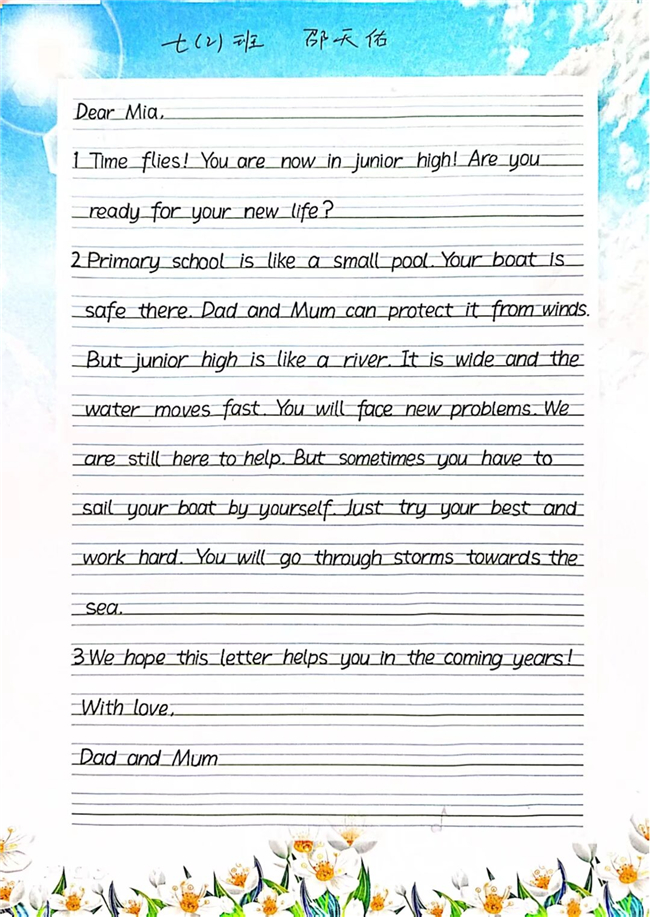 七(2)班 邵天佑
Dear Mia,
1 Time flies! You are now in junior high! Are you
ready for your new life?
2 Primary school is like a small pool. Your boat is
safe there. Dad and Mum can protect it from winds.
But junior high is like a river. It is wide and the
water moves fast. You will face new problems. We
are still here to help. But sometimes you have to
sail your boat by yourself. Just try your best and
work hard. You will go through storms towards the
sea.
3 We hope this letter helps you in the coming years!
With love,
Dad and Mum